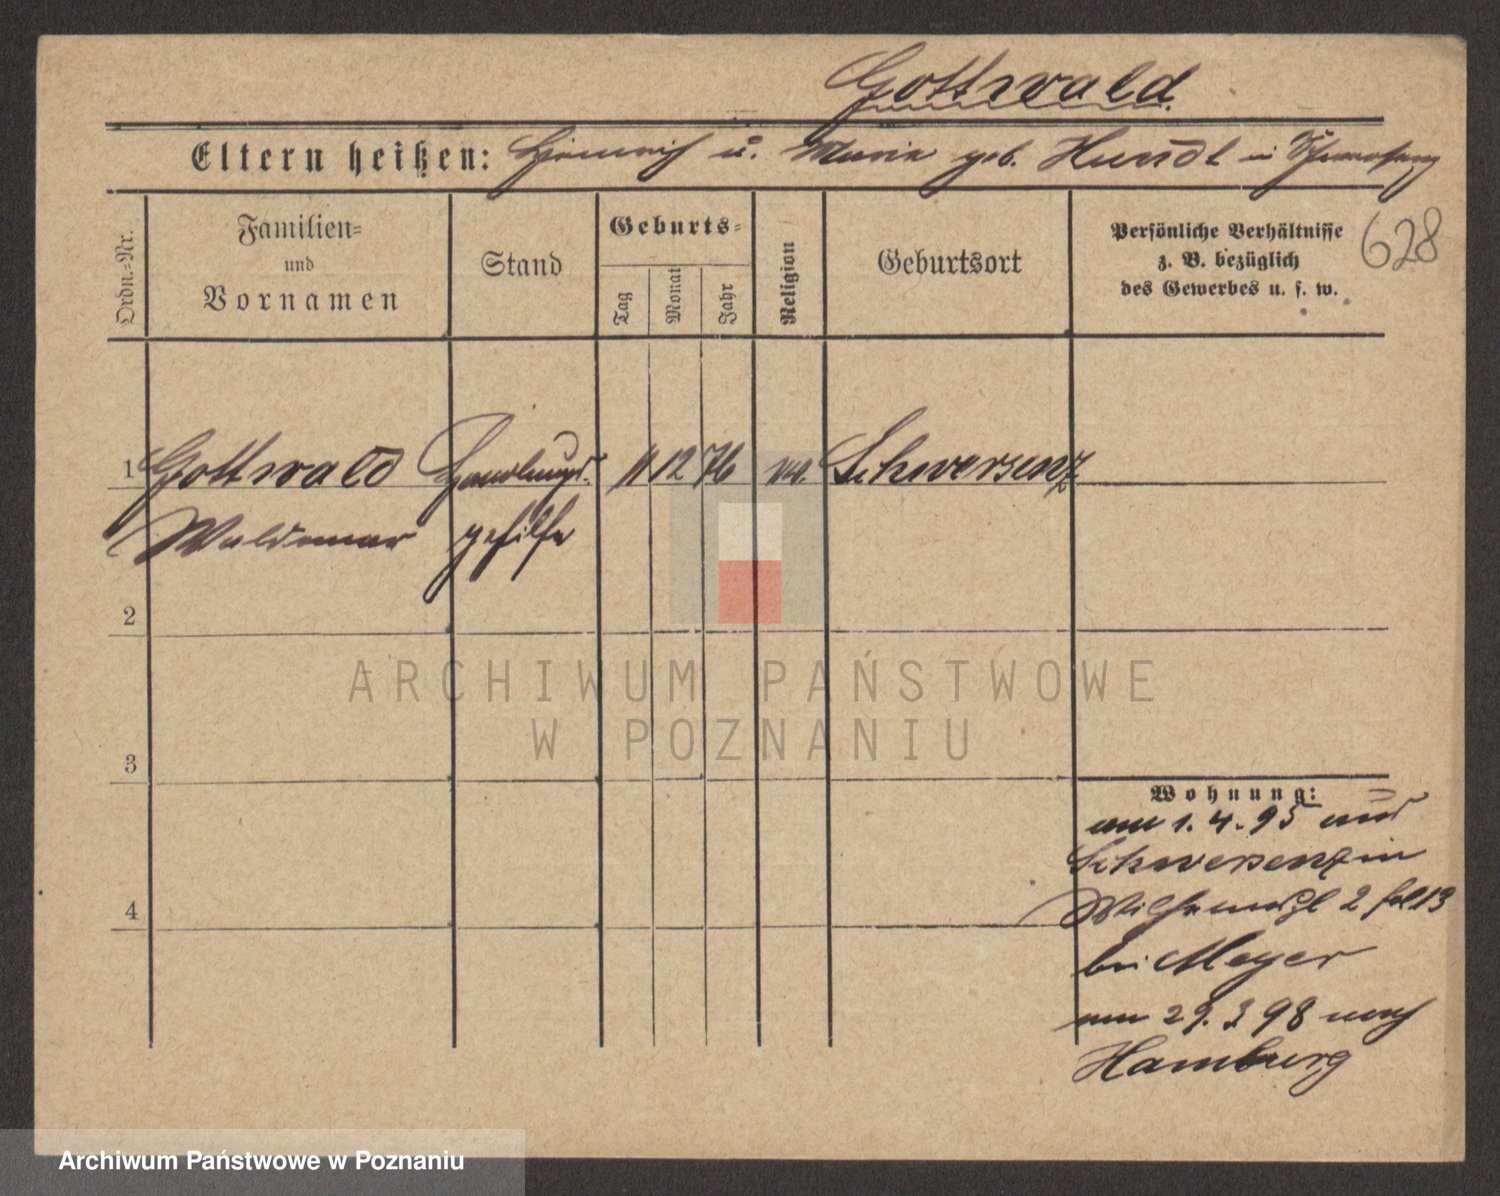 Gottwald
Eltern heißen: Heinrich u. Marie geb. Hundt in
628
Ordn.-Nr.
Familien-
und
Vornamen
Stand
Geburts-
Tag
Monat
Jahr
Religion
Geburtsort
Persönliche Verhältnisse
z. B. bezüglich
des Gewerbes u. s. w.
1 Gottwald Handlungs- 11 12 76 Schwersenz
Waldemar gehilfe
2
3
4
Wohnung:
am 1. 4. 95 aus
Schwersenz in
2
bei Meyer
am 29. 3 98 nach
Hamburg
ARCHIWUM PAŃSTWOWE
W POZNANIU
Archiwum Państwowe w Poznaniu